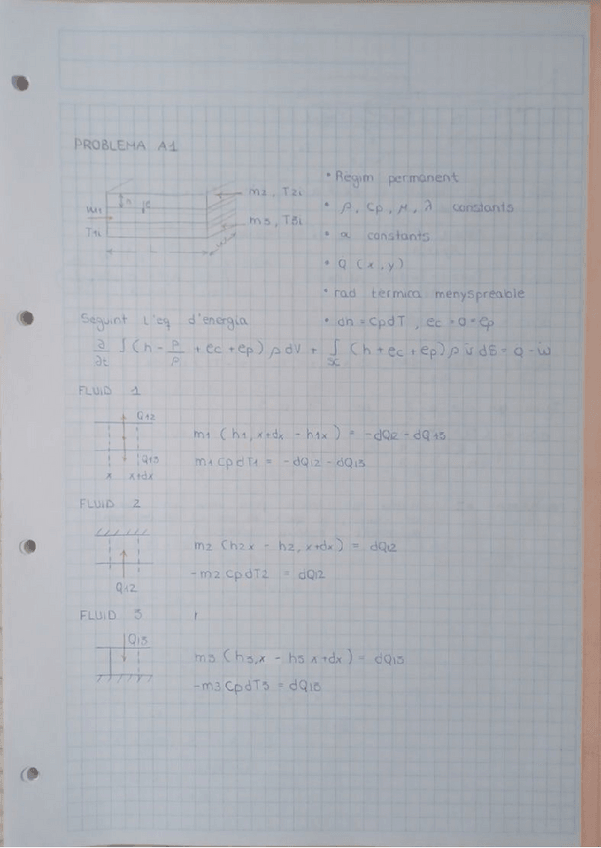 PROBLEMA A1
m2, T2i
m3, T3i
m1
T1i
h
e
• Règim permanent
• ρ, Cp, μ, λ constants
• α constants
• Q (x,y)
• rad tèrmica menyspreable
• dh = CpdT, ec = 0 = ep
Seguint l'eq d'energia
∂/∂t ∫ (h - P/ρ + ec + ep) ρ dV + ∫sc (h + ec + ep) ρ v dS = Q - W
FLUID 1
Q12
Q13
x x+dx
m1 (h1, x+dx - h1x) = -dQ12 - dQ13
m1 Cp dT1 = -dQ12 - dQ13
FLUID 2
Q12
m2 (h2x - h2, x+dx) = dQ12
-m2 Cp dT2 = dQ12
FLUID 3
Q13
m3 (h3,x - h3 x+dx) = dQ13
-m3 Cp dT3 = dQ13